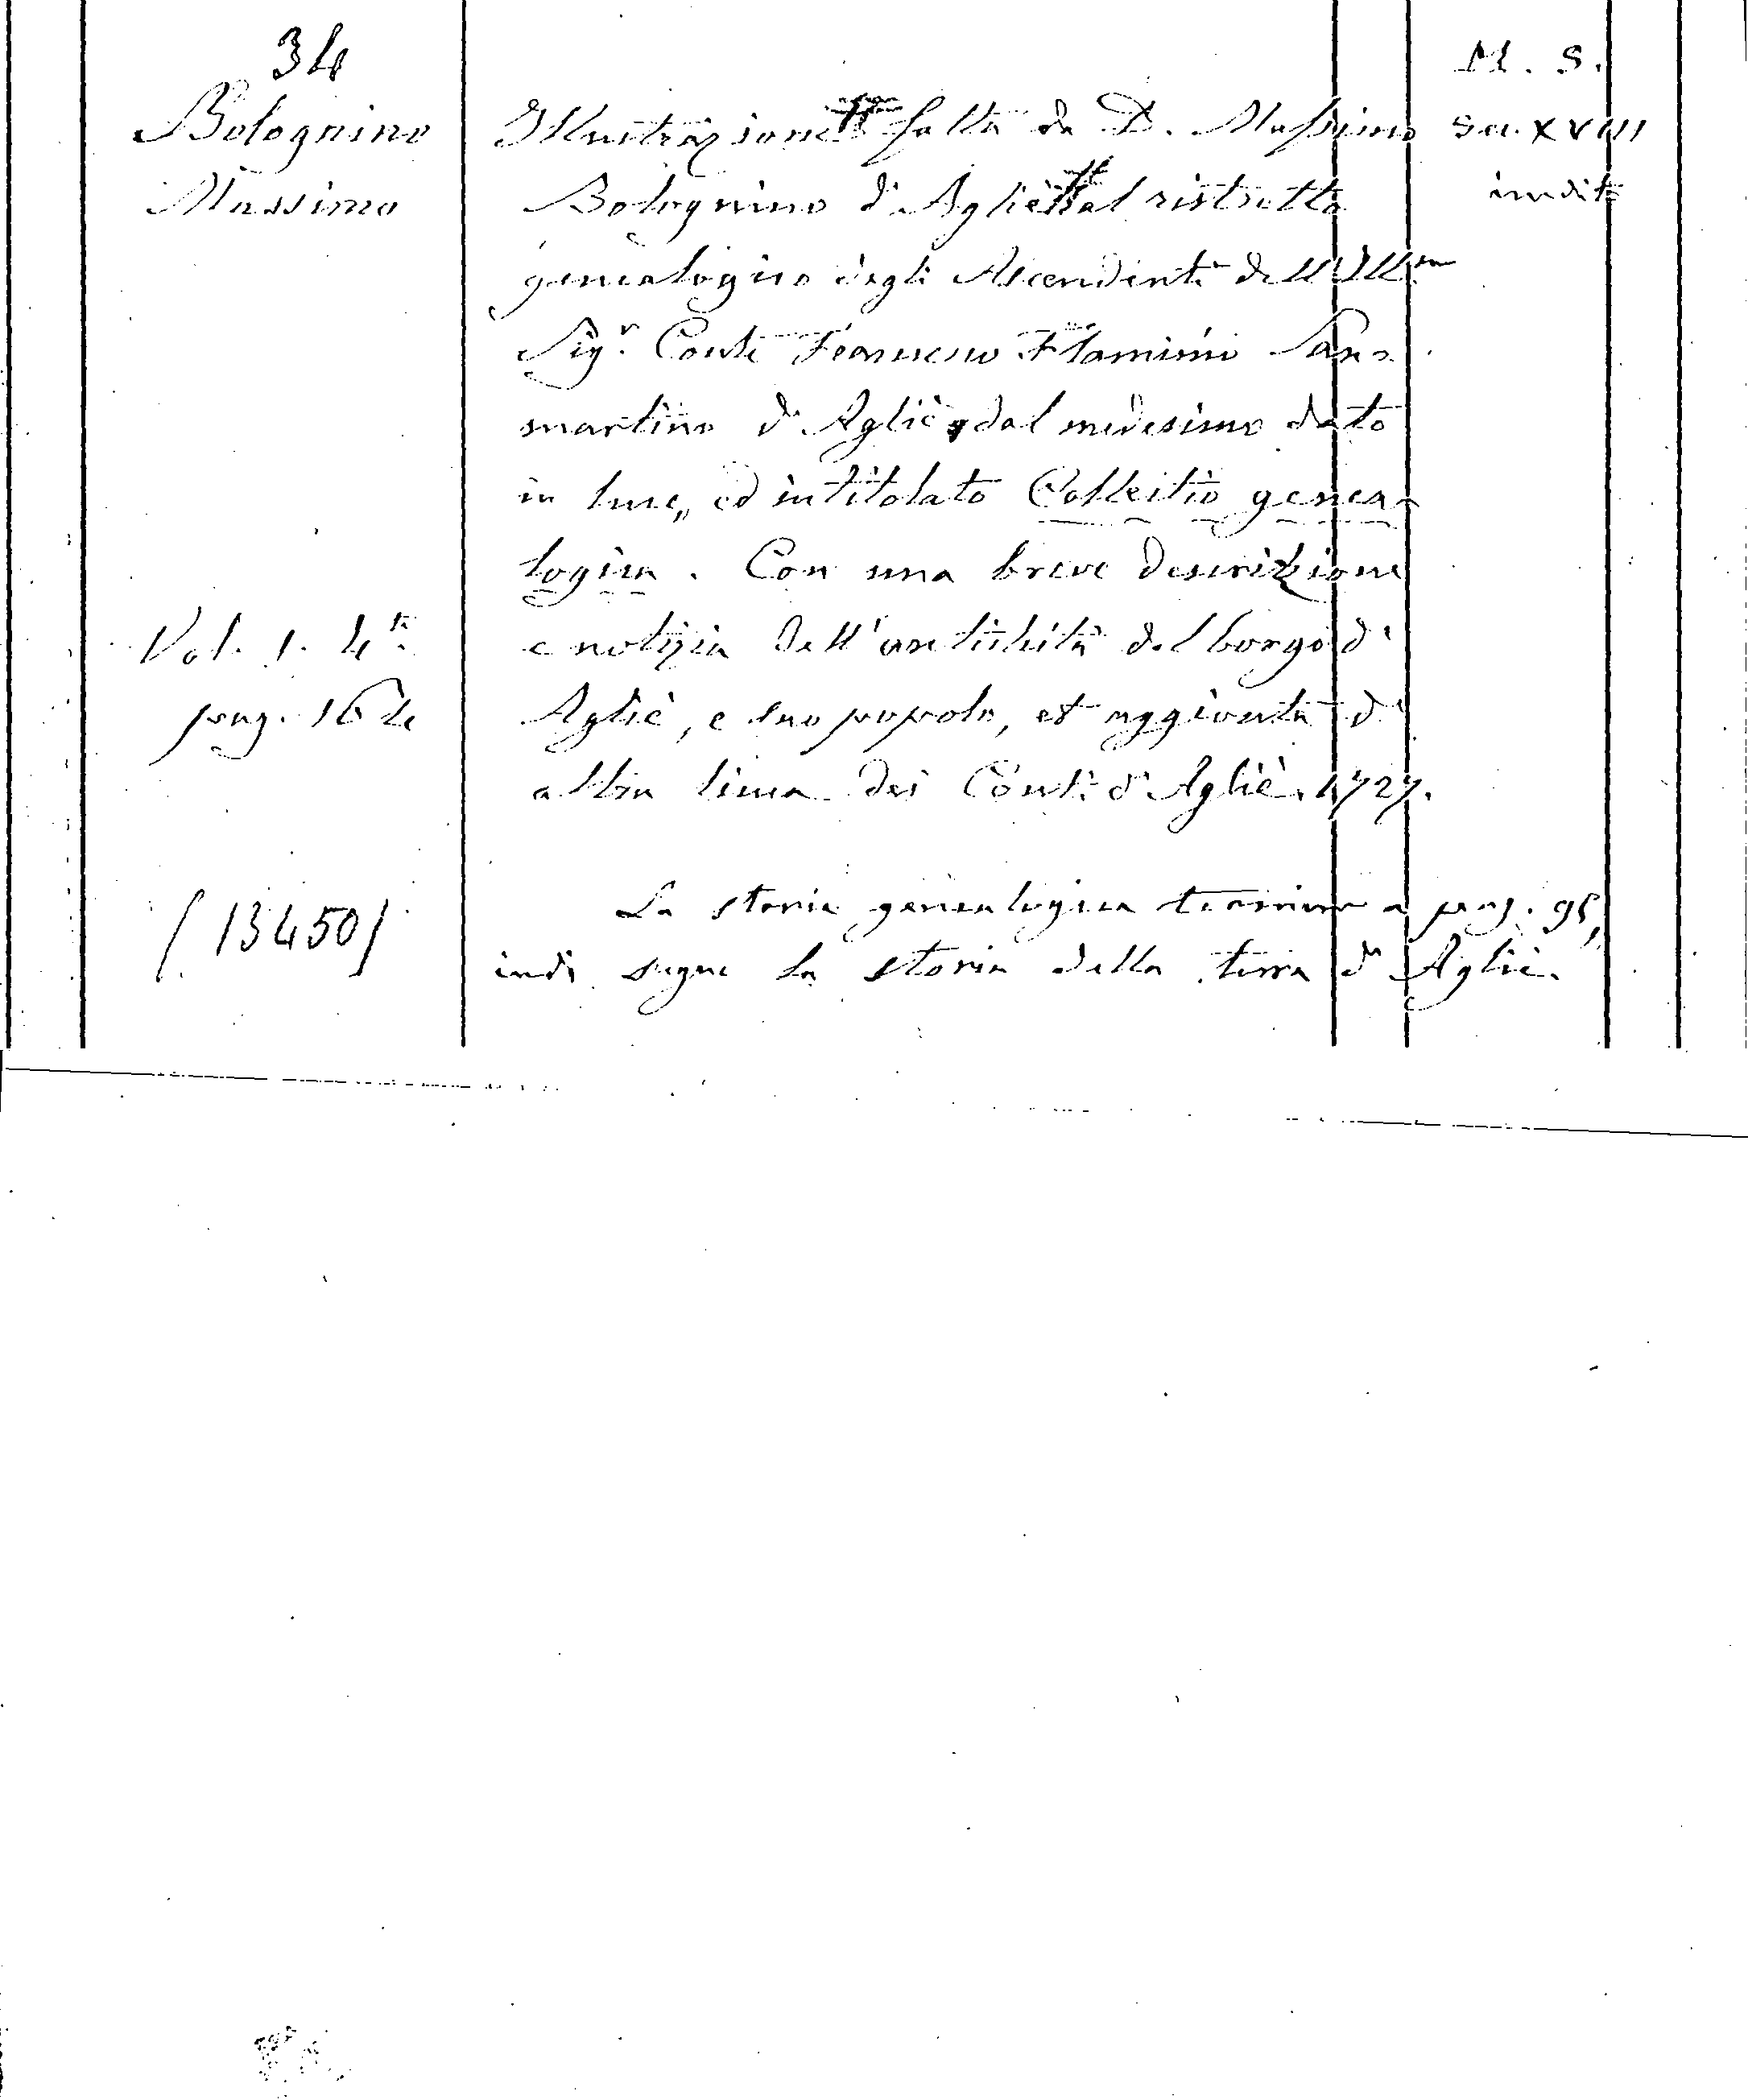 34
Bolognino
Massimo
Vol. 1. 4.to
pag. 164
(13450)
Illustrazione fatta da D. Massimo
Bolognino d'Agliè al ristretto
genealogico degli Ascendenti dell'Ill.mo
Sig.r Conte Francesco Flaminio San=
martino d'Agliè, dal medesimo dato
in luce, ed intitolato Collectio genea=
logica. Con una breve descrizione
e notizia dell'antichità del borgo di
Agliè, e suo popolo, et aggionta di
altra linea dei Conti d'Agliè. 1727.
La storia genealogica termina a pag. 95,
indi segue la storia della terra d'Agliè.
M. S.
sec. XVIII
inedito